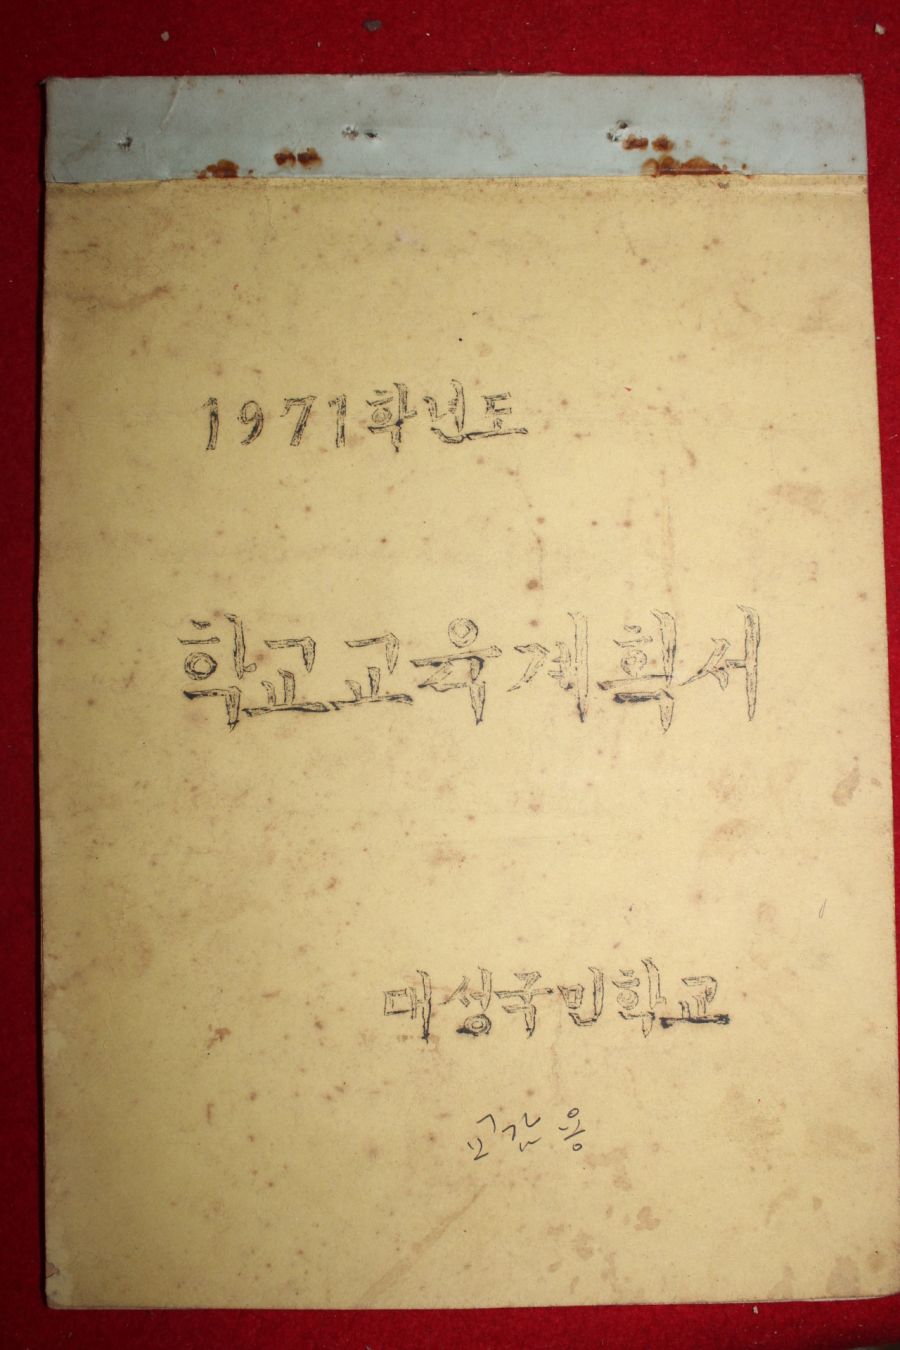 1971학년도
학교교육계획서
매성국민학교
교감용